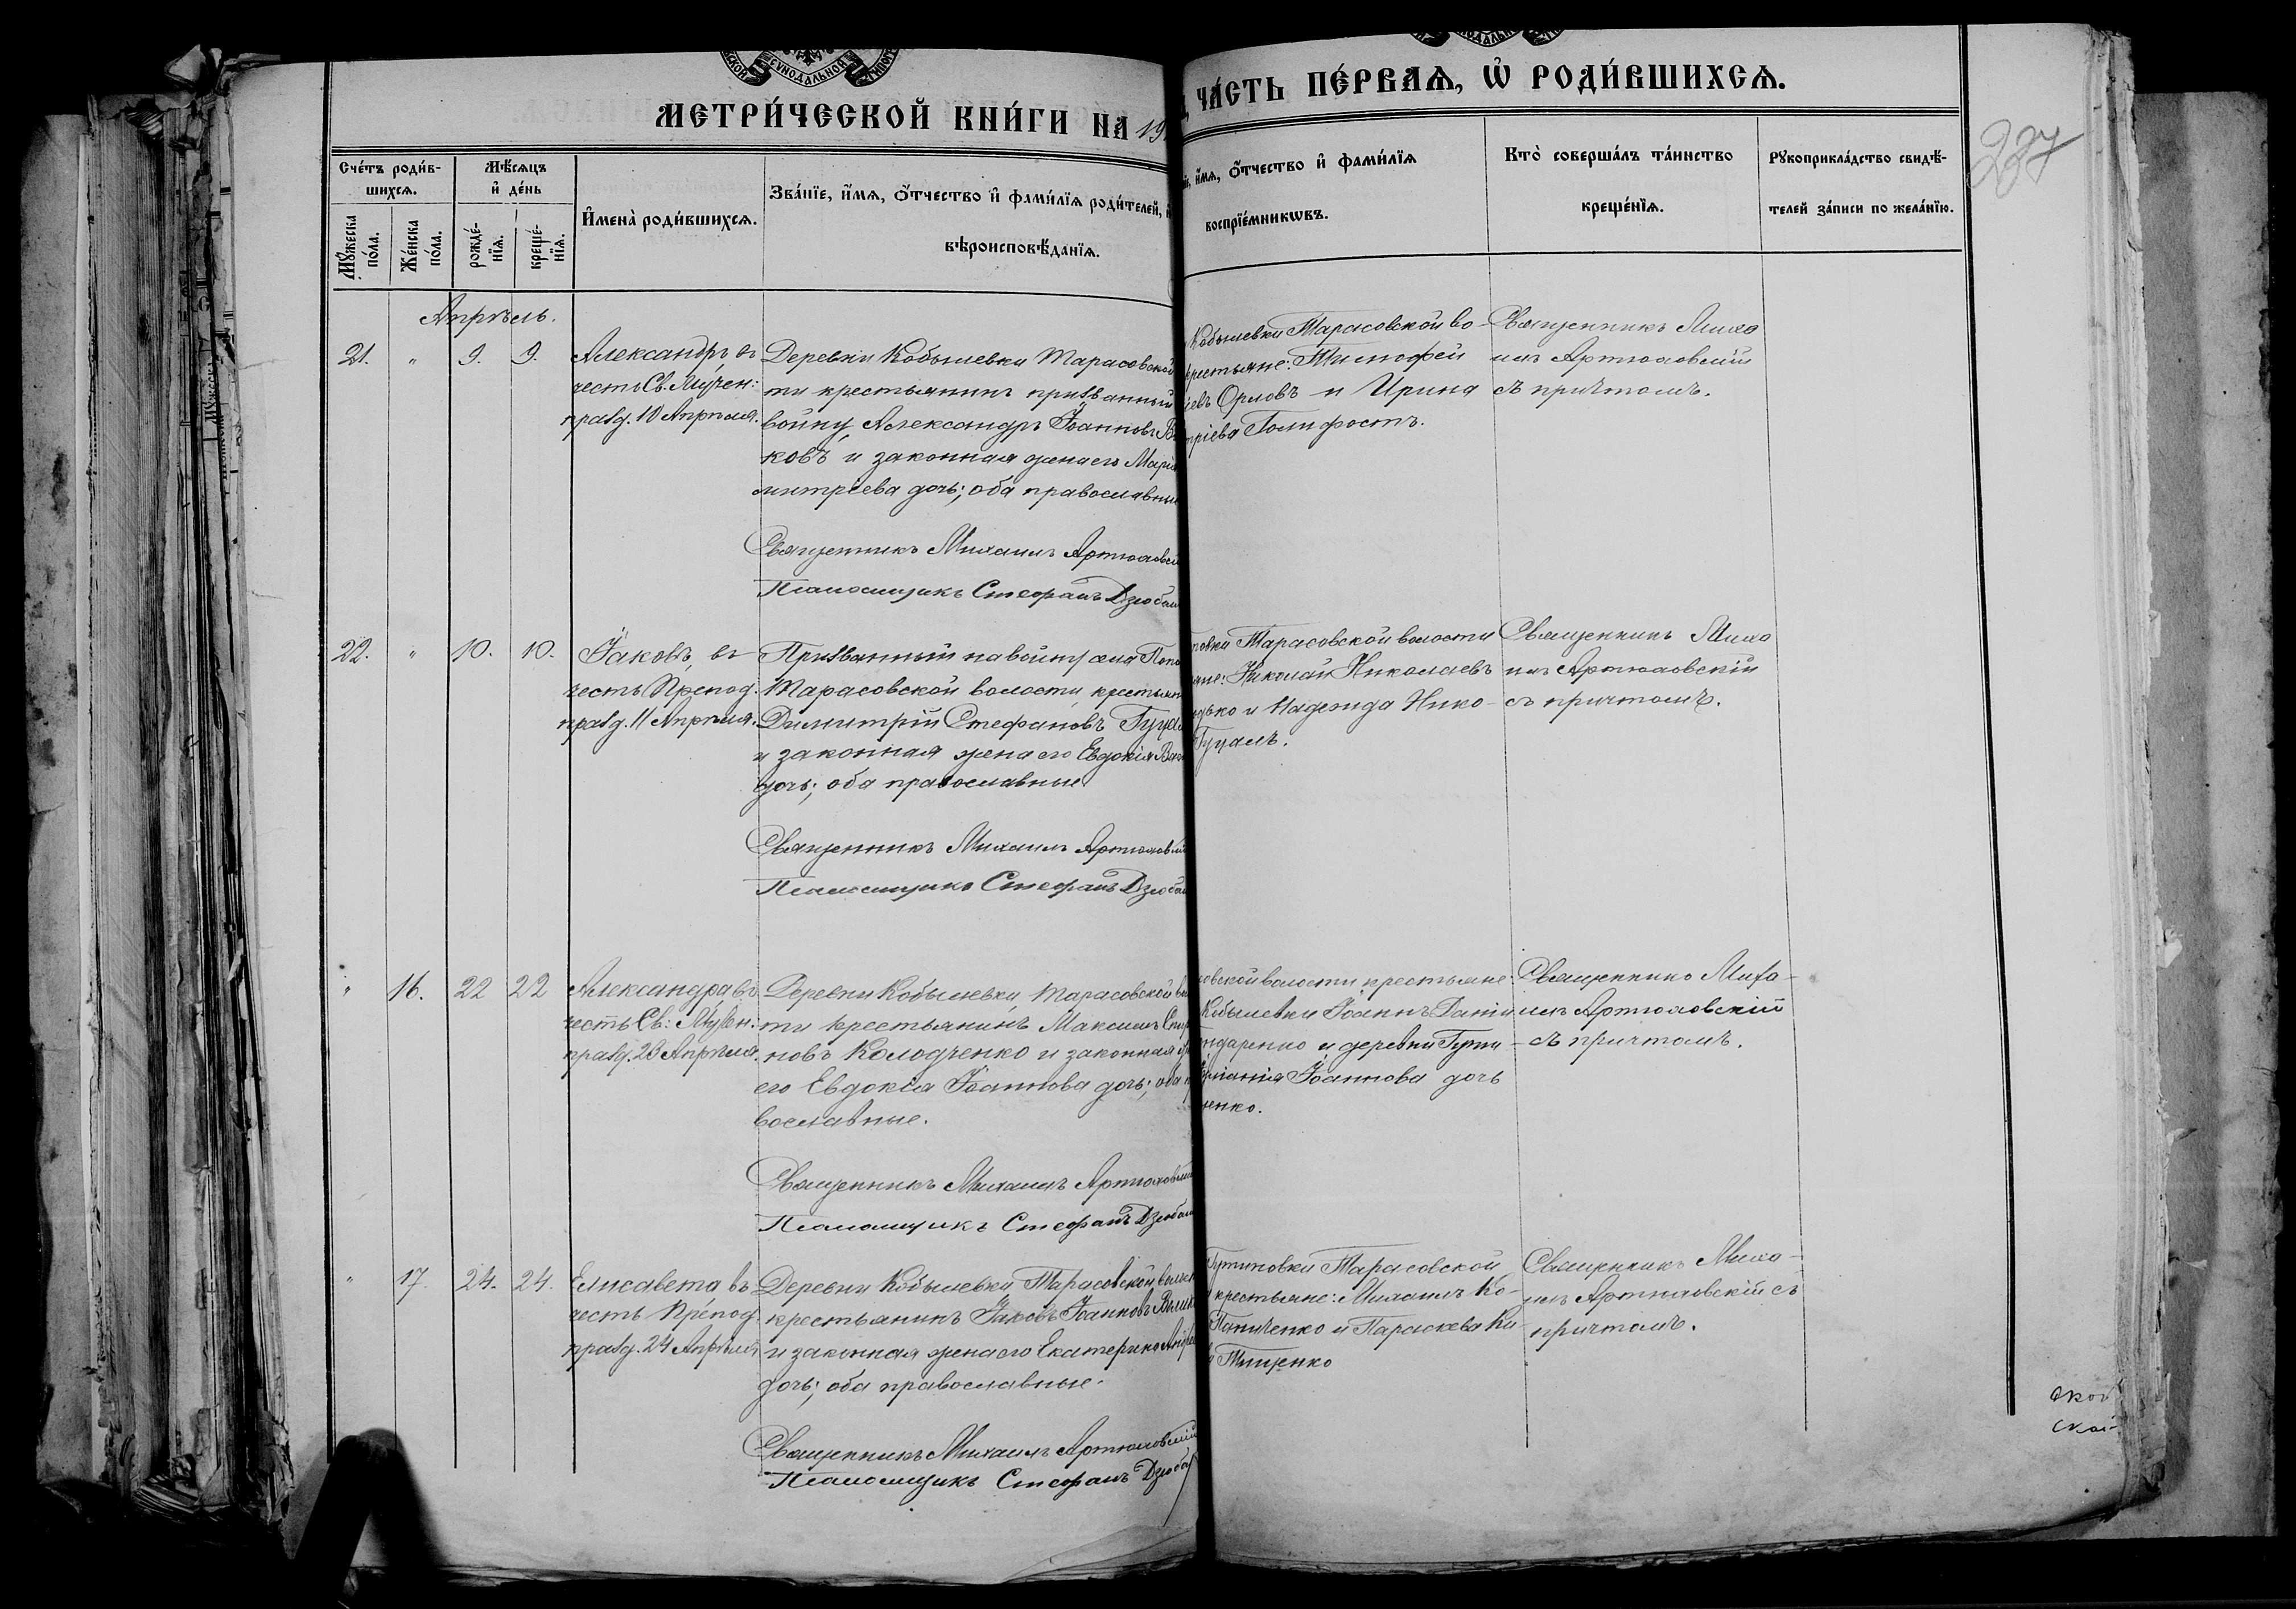 СУНОДАЛЬНОЙ
МЕТРИ́ЧЕСКОЙ КНИ́ГИ НА 19
ЧА́СТЬ ПЕ́РВАѦ, Ѿ РОДИ́ВШИХСѦ.
227
Сче́тъ роди́в-
шихсѧ.
Мѣ́сѧцъ
и҆ де́нь
Мꙋ́жеска
по́ла.
Же́нска
по́ла.
рожде́-
нїѧ.
креще́-
нїѧ.
И҆мена̀ роди́вшихсѧ.
Зва́нїе, и҆́мѧ, ѻ҆́тчество и҆ фами́лїѧ роди́телей, и҆
вѣроисповѣ́данїѧ.
и҆́мѧ, ѻ҆́тчество и҆ фами́лїѧ
воспрїе́мникѡвъ.
Кто̀ соверша́лъ та́инство
креще́нїѧ.
Рꙋкоприкла́дство свидѣ́-
телей за́писи по жела́нїю.
Апрѣль.
21. " 9. 9.
Александръ въ
честь Св. Мучен:
празд. 10 Апрѣля.
Деревни Кобылевки Тарасовской
ти крестьянинъ призванный
войну Александръ Іоанновъ
ковъ и законная жена его Марія
митріева дочь; оба православные
Священникъ Михаилъ Артюховскій
Псаломщикъ Стефанъ Дзюба
Кобылевки Тарасовской во-
крестьяне: Тимофей
евъ Орловъ и Ирина
тріева Голифостъ.
Священникъ Миха
илъ Артюховскій
съ причтомъ.
22. " 10. 10.
Іаковъ, въ
честь Препод.
празд. 11 Апрѣля.
Призванный на войну села
Тарасовской волости, крестьянинъ
Димитрій Стефановъ Гуцалъ
и законная жена его Евдокія
дочь; оба православные
Священникъ Михаилъ Артюховскій
Псаломщикъ Стефанъ Дзюба
повки Тарасовской волости
яне: Николай Николаевъ
дько и Надежда Нико-
Гуцалъ.
Священникъ Миха
илъ Артюховскій
съ причтомъ.
" 16. 22 22
Александра въ
честь Св: Мучен:
празд. 23 Апрѣля.
Деревни Кобылевки, Тарасовской во
ти крестьянинъ Максимъ
новъ Колодченко и законная
его Евдокія Іоаннова дочь; оба
вославные.
Священникъ Михаилъ Артюховскій
Псаломщикъ Стефанъ Дзюба
совской волости крестьяне:
Кобылевки Іоаннъ Дани
ндаренко и деревни
Іоаннова дочь
ченко.
Священникъ Миха-
илъ Артюховскій
съ причтомъ.
" 17 24. 24.
Елисавета, въ
честь Препод.
празд. 24 Апрѣля
Деревни Кобылевки, Тарасовской
крестьянинъ Іаковъ Іоанновъ
и законная жена его Екатерина
дочь; оба православные.
Священникъ Михаилъ Артюховскій
Псаломщикъ Стефанъ Дзюба
Тарасовской
крестьяне: Михаилъ Ко-
и Параскева Ки
Тищенко
Священникъ Миха-
илъ Артюховскій съ
причтомъ.
ской
ской